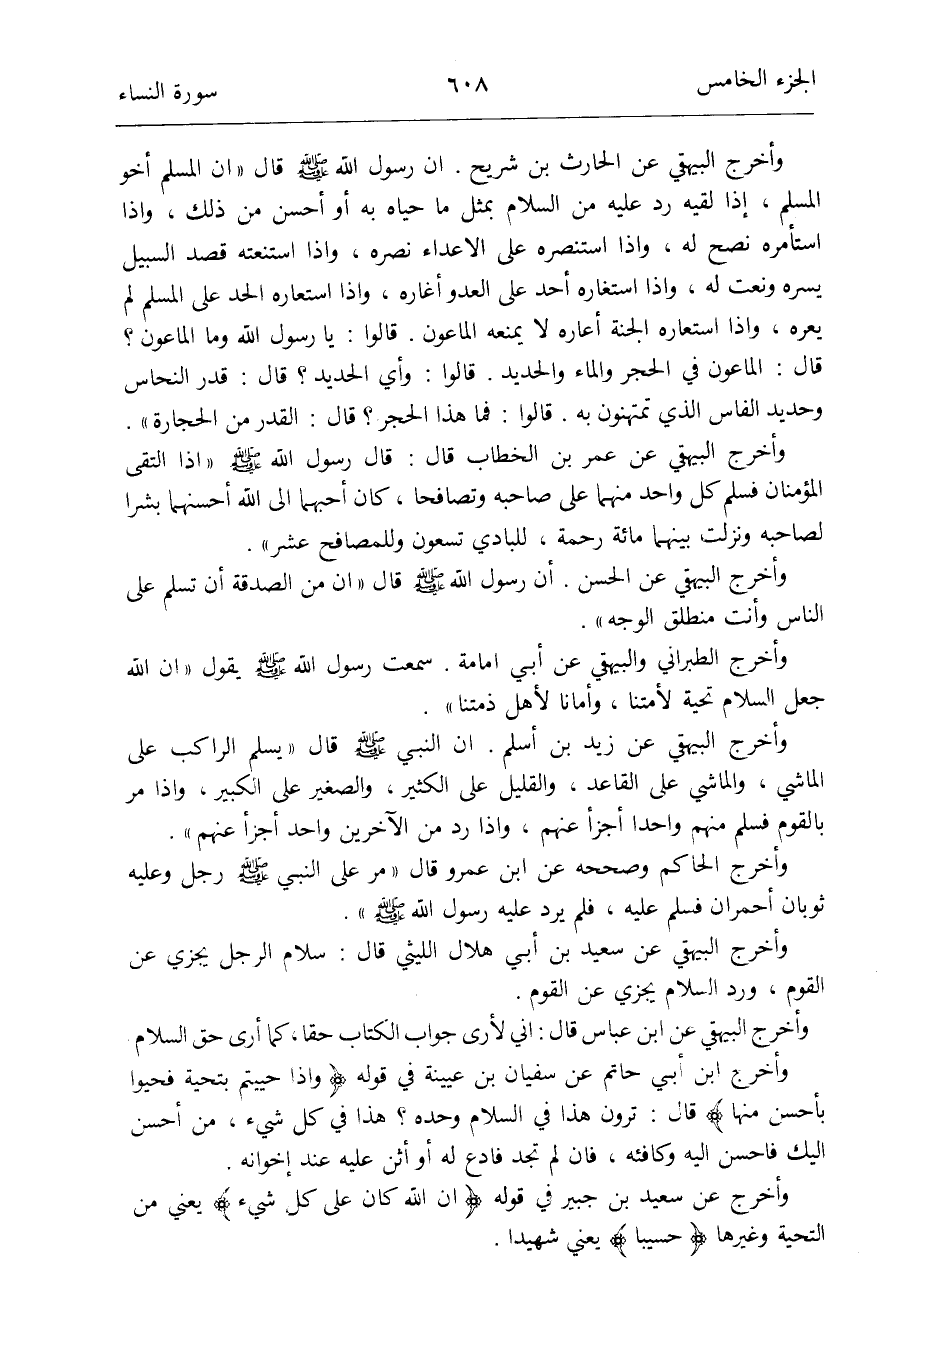 الجزء الخامس ٦٠٨ سورة النساء
وأخرج البيهقي عن الحارث بن شريح . ان رسول الله ﷺ قال « ان المسلم أخو
المسلم ، إذا لقيه رد عليه من السلام بمثل ما حياه به أو أحسن من ذلك ، واذا
استأمره نصح له ، واذا استنصره على الاعداء نصره ، واذا استنعته قصد السبيل
يسره ونعت له ، واذا استغاره أحد على العدو أغاره ، واذا استعاره الحد على المسلم لم
يعره ، واذا استعاره الجنة أعاره لا يمنعه الماعون . قالوا : يا رسول الله وما الماعون ؟
قال : الماعون في الحجر والماء والحديد . قالوا : وأي الحديد ؟ قال : قدر النحاس
وحديد الفاس الذي تمتهنون به . قالوا : فما هذا الحجر ؟ قال : القدر من الحجارة » .
وأخرج البيهقي عن عمر بن الخطاب قال : قال رسول الله ﷺ « اذا التقى
المؤمنان فسلم كل واحد منهما على صاحبه وتصافحا ، كان أحبهما الى الله أحسنهما بشرا
لصاحبه ونزلت بينهما مائة رحمة ، للبادي تسعون وللمصافح عشر » .
وأخرج البيهقي عن الحسن . أن رسول الله ﷺ قال « ان من الصدقة أن تسلم على
الناس وأنت منطلق الوجه » .
وأخرج الطبراني والبيهقي عن أبي امامة . سمعت رسول الله ﷺ يقول « ان الله
جعل السلام تحية لأمتنا ، وأمانا لأهل ذمتنا » .
وأخرج البيهقي عن زيد بن أسلم . ان النبي ﷺ قال « يسلم الراكب على
الماشي ، والماشي على القاعد ، والقليل على الكثير ، والصغير على الكبير ، واذا مر
بالقوم فسلم منهم واحدا أجزأ عنهم ، واذا رد من الآخرين واحد أجزأ عنهم » .
وأخرج الحاكم وصححه عن ابن عمرو قال « مر على النبي ﷺ رجل وعليه
ثوبان أحمران فسلم عليه ، فلم يرد عليه رسول الله ﷺ » .
وأخرج البيهقي عن سعيد بن أبي هلال الليثي قال : سلام الرجل يجزي عن
القوم ، ورد السلام يجزي عن القوم .
وأخرج البيهقي عن ابن عباس قال : اني لأرى جواب الكتاب حقا ، كما أرى حق السلام .
وأخرج ابن أبي حاتم عن سفيان بن عيينة في قوله ﴿ واذا حييتم بتحية فحيوا
بأحسن منها ﴾ قال : ترون هذا في السلام وحده ؟ هذا في كل شيء ، من أحسن
اليك فاحسن اليه وكافئه ، فان لم تجد فادع له أو أثن عليه عند إخوانه .
وأخرج عن سعيد بن جبير في قوله ﴿ ان الله كان على كل شيء ﴾ يعني من
التحية وغيرها ﴿ حسيبا ﴾ يعني شهيدا .